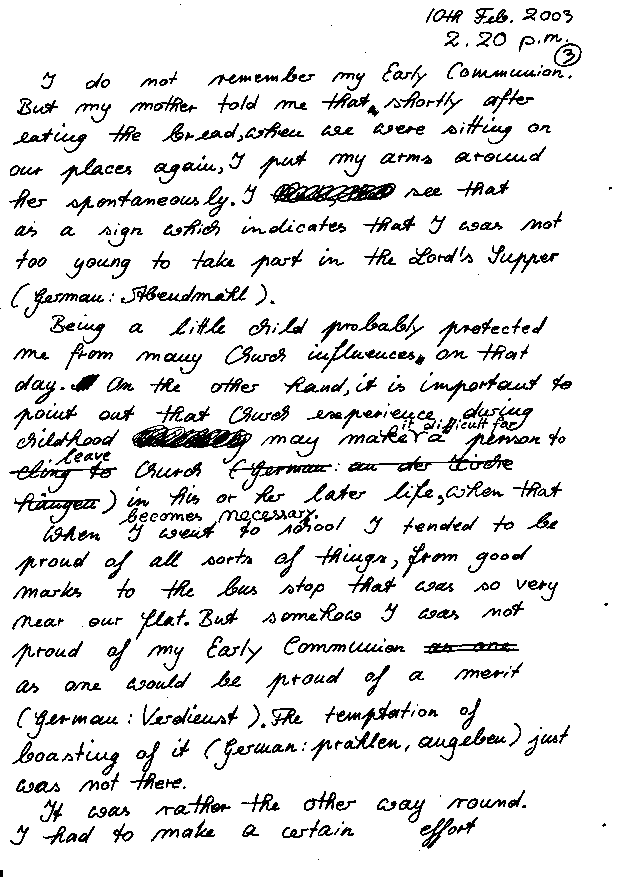 10th Feb. 2003
2.20 p.m.
3
I do not remember my Early Communion.
But my mother told me that, shortly after
eating the bread, when we were sitting on
our places again, I put my arms around
her spontaneously. I see that
as a sign which indicates that I was not
too young to take part in the Lord's Supper
(German: Abendmahl).
Being a little child probably protected
me from many Church influences, on that
day. On the other hand, it is important to
point out that Church experience during
childhood may make it difficult for a person to
cling to leave Church (German: an der Kirche
hängen) in his or her later life, when that
becomes necessary.
When I went to school I tended to be
proud of all sorts of things, from good
marks to the bus stop that was so very
near our flat. But somehow I was not
proud of my Early Communion as one
as one would be proud of a merit
(German: Verdienst). The temptation of
boasting of it (German: prahlen, angeben) just
was not there.
It was rather the other way round.
I had to make a certain effort